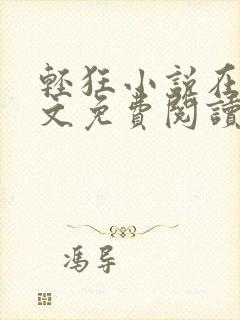 輕狂小說在
文免費閱讀
馮导